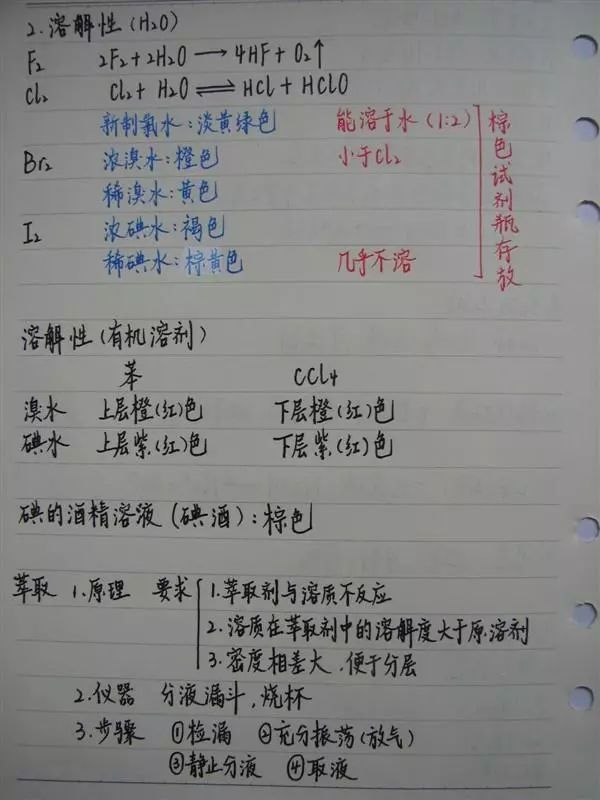 2.溶解性(H₂O)
F₂ 2F₂+2H₂O⟶4HF+O₂↑
Cl₂ Cl₂+H₂O⇌HCl+HClO
新制氯水:淡黄绿色 能溶于水(1:2)
Br₂ 浓溴水:橙色 小于Cl₂
稀溴水:黄色
I₂ 浓碘水:褐色
稀碘水:棕黄色 几乎不溶
棕色试剂瓶存放
溶解性(有机溶剂)
苯 CCl₄
溴水 上层橙(红)色 下层橙(红)色
碘水 上层紫(红)色 下层紫(红)色
碘的酒精溶液(碘酒):棕色
萃取 1.原理 要求 1.萃取剂与溶质不反应
2.溶质在萃取剂中的溶解度大于原溶剂
3.密度相差大,便于分层
2.仪器 分液漏斗,烧杯
3.步骤 ①检漏 ②充分振荡(放气)
③静止分液 ④取液